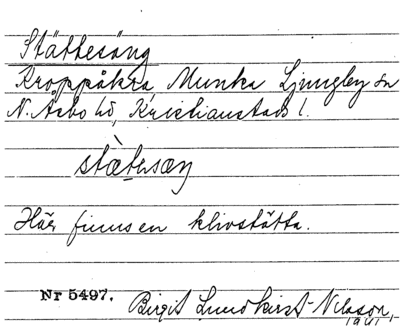 Stättesäng
Kroppåkra, Munka Ljungby sn
N. Åsbo hd, Kristianstads l.
stæ̀tesæŋ
Här finns en klivstätta.
Nr 5497. Birgit Lundkvist-Nilsson,
1941.